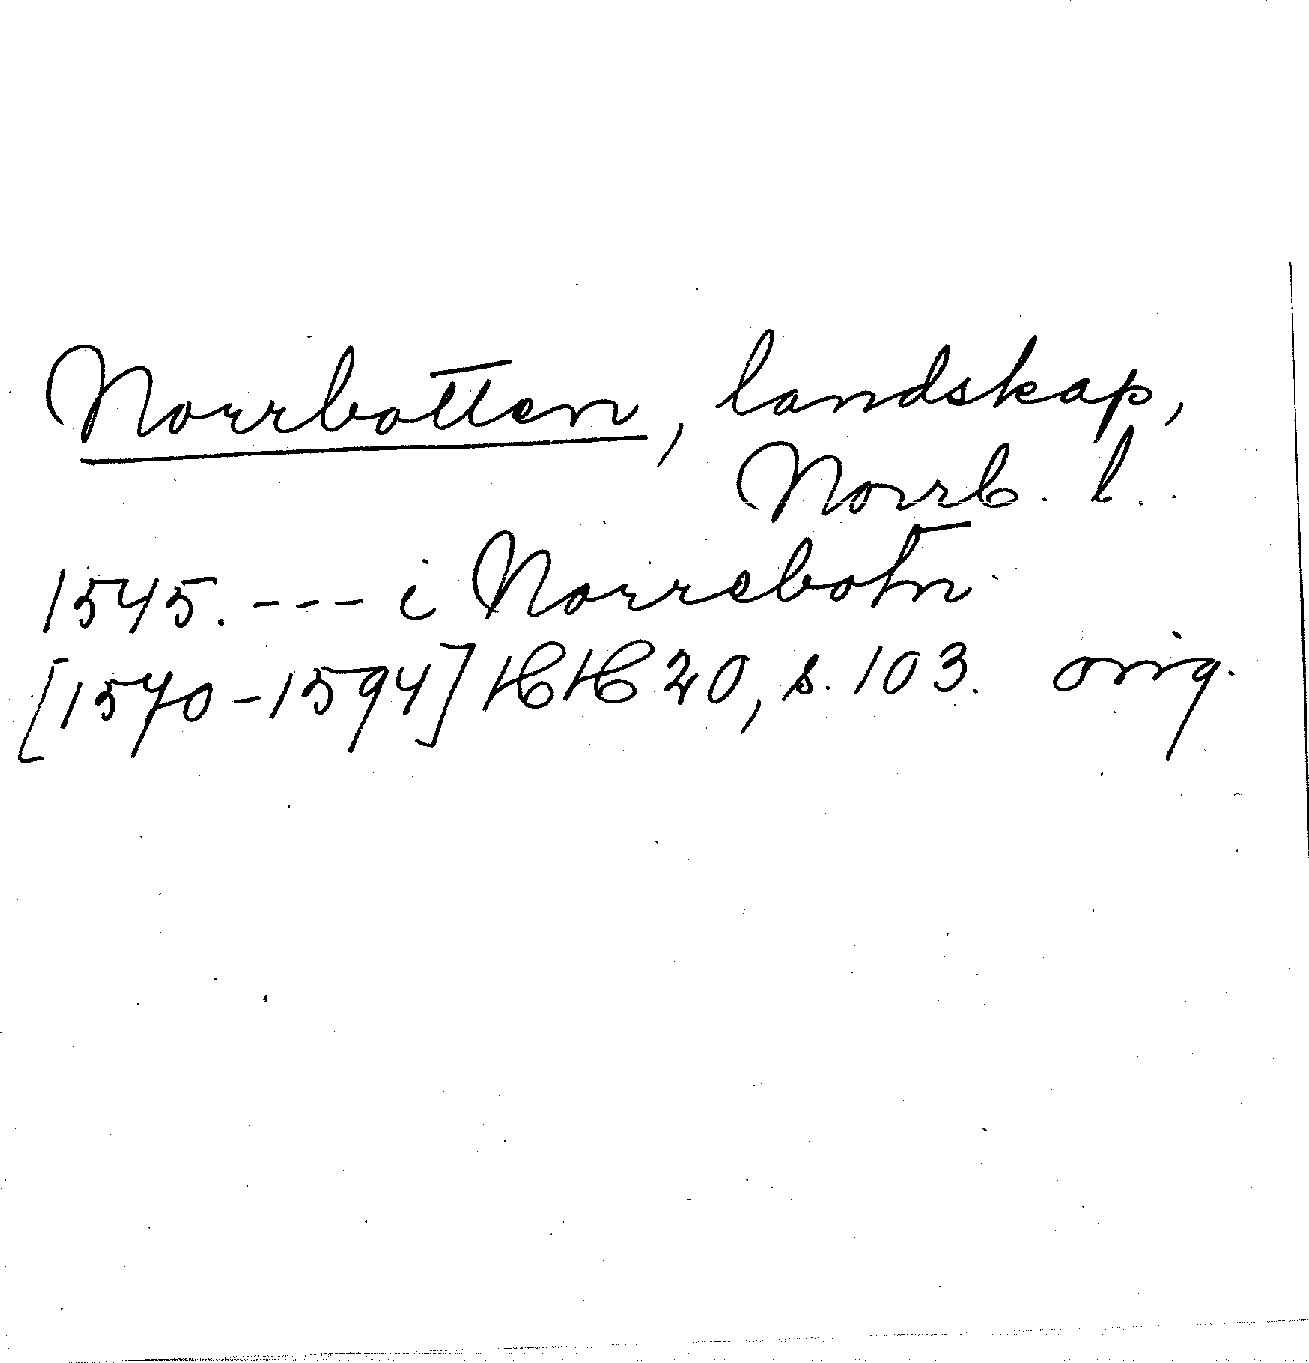 Norrbotten, landskap,
Norrb. l.
1545. --- i Norrebotn
[1570-1594] HH 20, s. 103. orig.